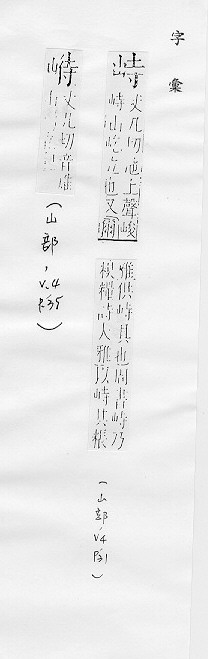 字彙
峙
丈几切池上聲峻
峙山屹立也又爾
雅供峙其也周書峙乃
糗糧詩大雅以峙其粻
(山部,V4 P31)
丈几切音雉
(山部,V.4 P.35)